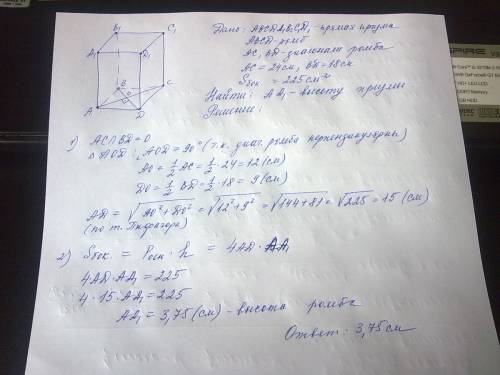 B₁
C₁
A₁
D₁
B
C
O
A
D
Дано: ABCDA₁B₁C₁D₁ - прямая призма
ABCD - ромб
AC, BD - диагонали ромба
AC = 24 см, BD = 18 см
Sбок = 225 см²
Найти: AA₁ - высоту призмы
Решение:
1) AC∩BD = O
△AOD: ∠AOD = 90° (т.к. диаг. ромба перпендикулярны)
AO = 1/2 AC = 1/2 · 24 = 12 (см)
DO = 1/2 BD = 1/2 · 18 = 9 (см)
AD = √AO² + DO² = √12² + 9² = √144 + 81 = √225 = 15 (см)
(по т. Пифагора)
2) Sбок = Pосн · h = 4AD · AA₁
4AD · AA₁ = 225
4 · 15 · AA₁ = 225
AA₁ = 3,75 (см) - высота ромба
Ответ: 3,75 см